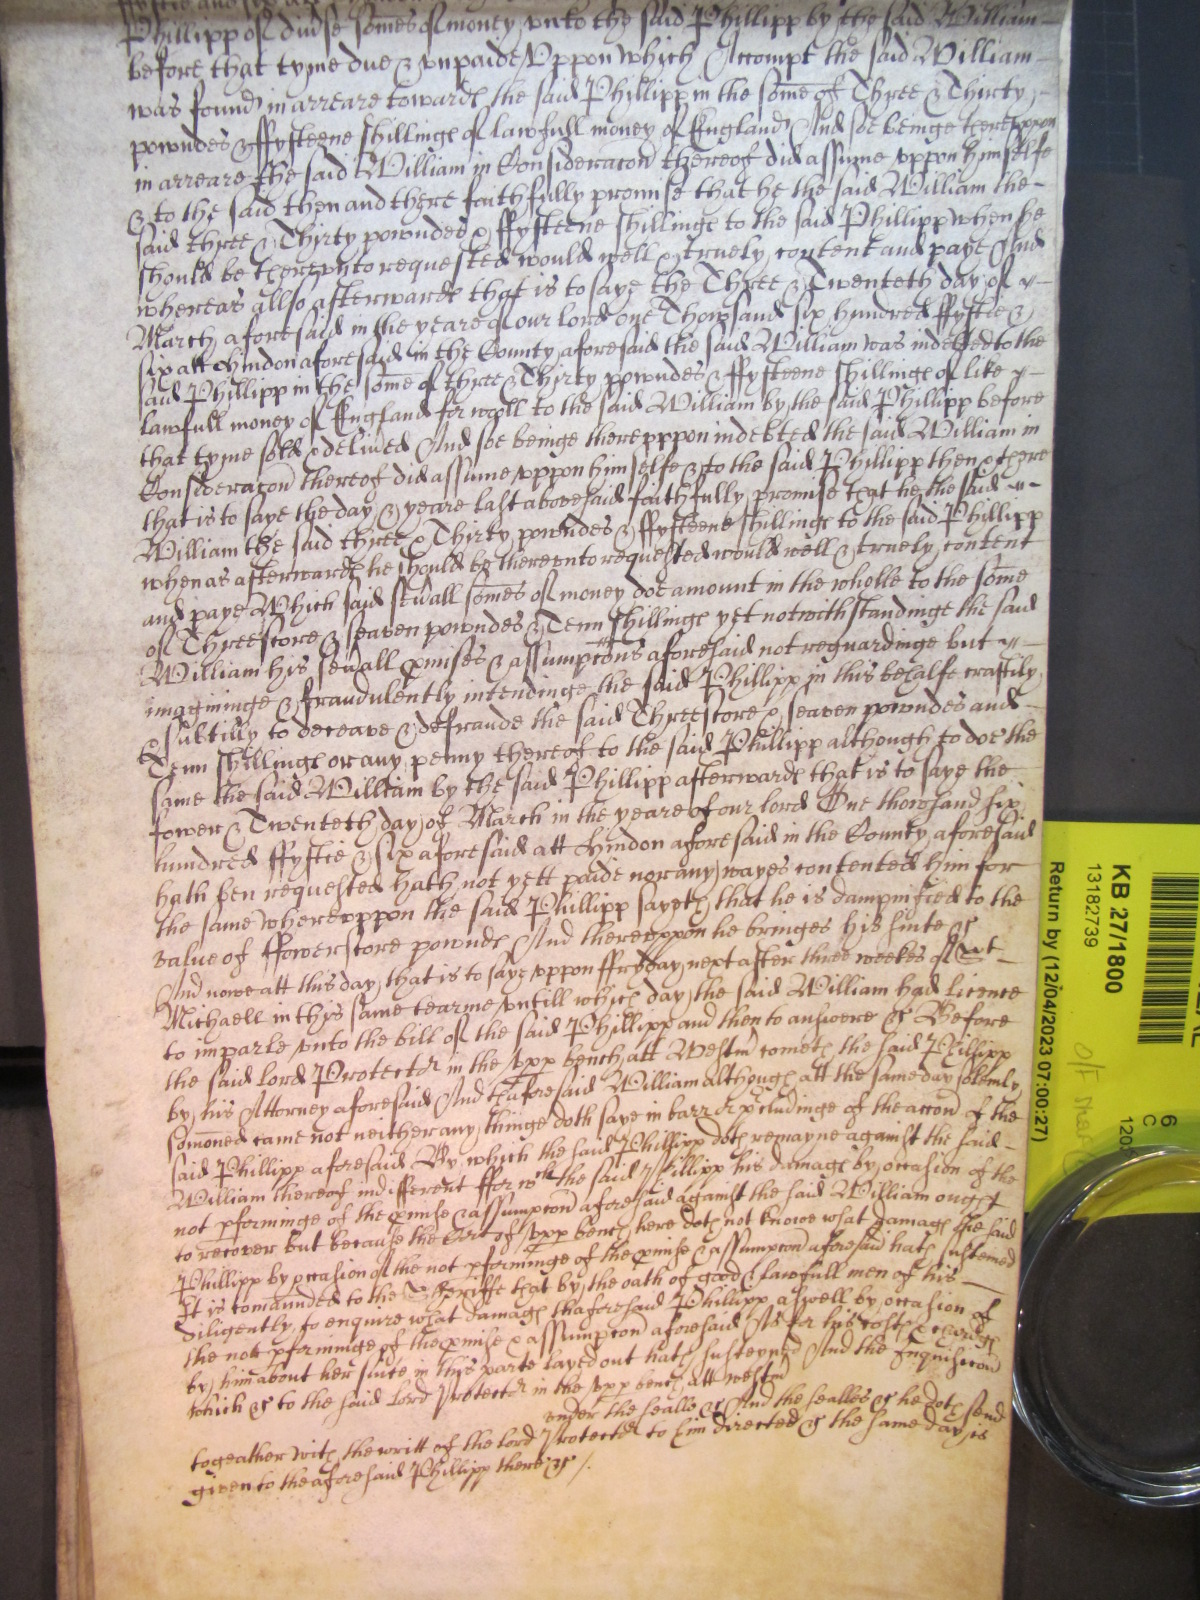 Phillipp of div'se somes of money unto the said Phillipp by the said William
before that tyme due & unpaide Uppon which Accompt the said William
was found in arreare towards the said Phillipp in the some of Three & Thirty
powndes & ffyfteene shillings of lawfull money of England And soe beinge thereuppon
in arreare the said William in Consideracon thereof did assume uppon himselfe
& to the said then and there faithfully promise that he the said William the
said three & Thirty powndes & ffyfteene shillings to the said Phillipp when he
should be thereunto requested would well & truely content and paye And
whereas allso afterwards that is to saye the Three & Twenteth day of
March aforesaid in the yeare of our lord one Thowsand six hundred ffyftie &
six att Hindon aforesaid in the County aforesaid the said William was indebted to the
said Phillipp in the some of three & Thirty powndes & ffyfteene shillings of like
lawfull money of England for wooll to the said William by the said Phillipp before
that tyme sold & delived And soe beinge thereuppon indebted the said William in
Consideracon thereof did assume uppon himselfe & to the said Phillipp then & there
that is to saye the day & yeare last abovesaid faithfully promise that he the said
William the said three & Thirty powndes & ffyfteene shillings to the said Phillipp
whenas afterwards he should be thereunto requested would well & truely content
and paye Which said sevall somes of money doe amount in the wholle to the some
of Threescore & seaven powndes & Tenn shillings yet notwithstandinge the said
William his sevall pmises & assumptons aforesaid not reguardinge but
imagininge & fraudulently intendinge the said Phillipp in this behalfe craftily
& subtilly to deceave & defraude the said Threescore & seaven powndes and
Tenn shillings or any penny thereof to the said Phillipp although to doe the
same the said William by the said Phillipp afterwards that is to saye the
fower & Twenteth day of March in the yeare of our lord One thowsand six
hundred ffyftie & six aforesaid att Hindon aforesaid in the County aforesaid
hath ben requested hath not yett paide nor any wayes contented him for
the same whereuppon the said Phillipp sayeth that he is dampnified to the
value of ffowerscore pownds And thereuppon he bringes his suite &c
And nowe att this day that is to saye uppon ffryday next after three weekes of St
Michaell in this same tearme untill which day the said William had licence
to imparle unto the bill of the said Phillipp and then to answere &c Before
the said lord Protector in the upp bench att Westm cometh the said Phillipp
by his Attorney aforesaid And thaforesaid William although att the same day solemly
somoned came not neither any thinge doth saye in barr or pcludinge of the accon of the
said Phillipp aforesaid By which the said Phillipp doth remayne against the said
William thereof indifferent ffor wch the said Phillipp his damags by occasion of the
not pforminge of the pmise & assumpton aforesaid against the said William ought
to recover but because the Cort of upp bench here doth not knowe what damags the said
Phillipp by occasion of the not pforminge of the pmise & assumpton aforesaid hath susteined
It is comaunded to the Sheriffe that by the oath of good & lawfull men of his
diligently to enquire what damags thaforesaid Phillipp aswell by occasion of
the not pforminge of the pmise & assumpton aforesaid As for his costs & chargs
by him about her suite in this parte layed out hath susteyned And the Inquisicon
which &c to the said lord Protector in the upp bench att westm
under the sealle &c And the sealles &c he doth send
togeather with the writt of the lord Protector to him directed &c the same day is
given to the aforesaid Phillipp there &c /.
KB 27/1800
13182739
Return by (12/04/2023 07:00:27)
6
C